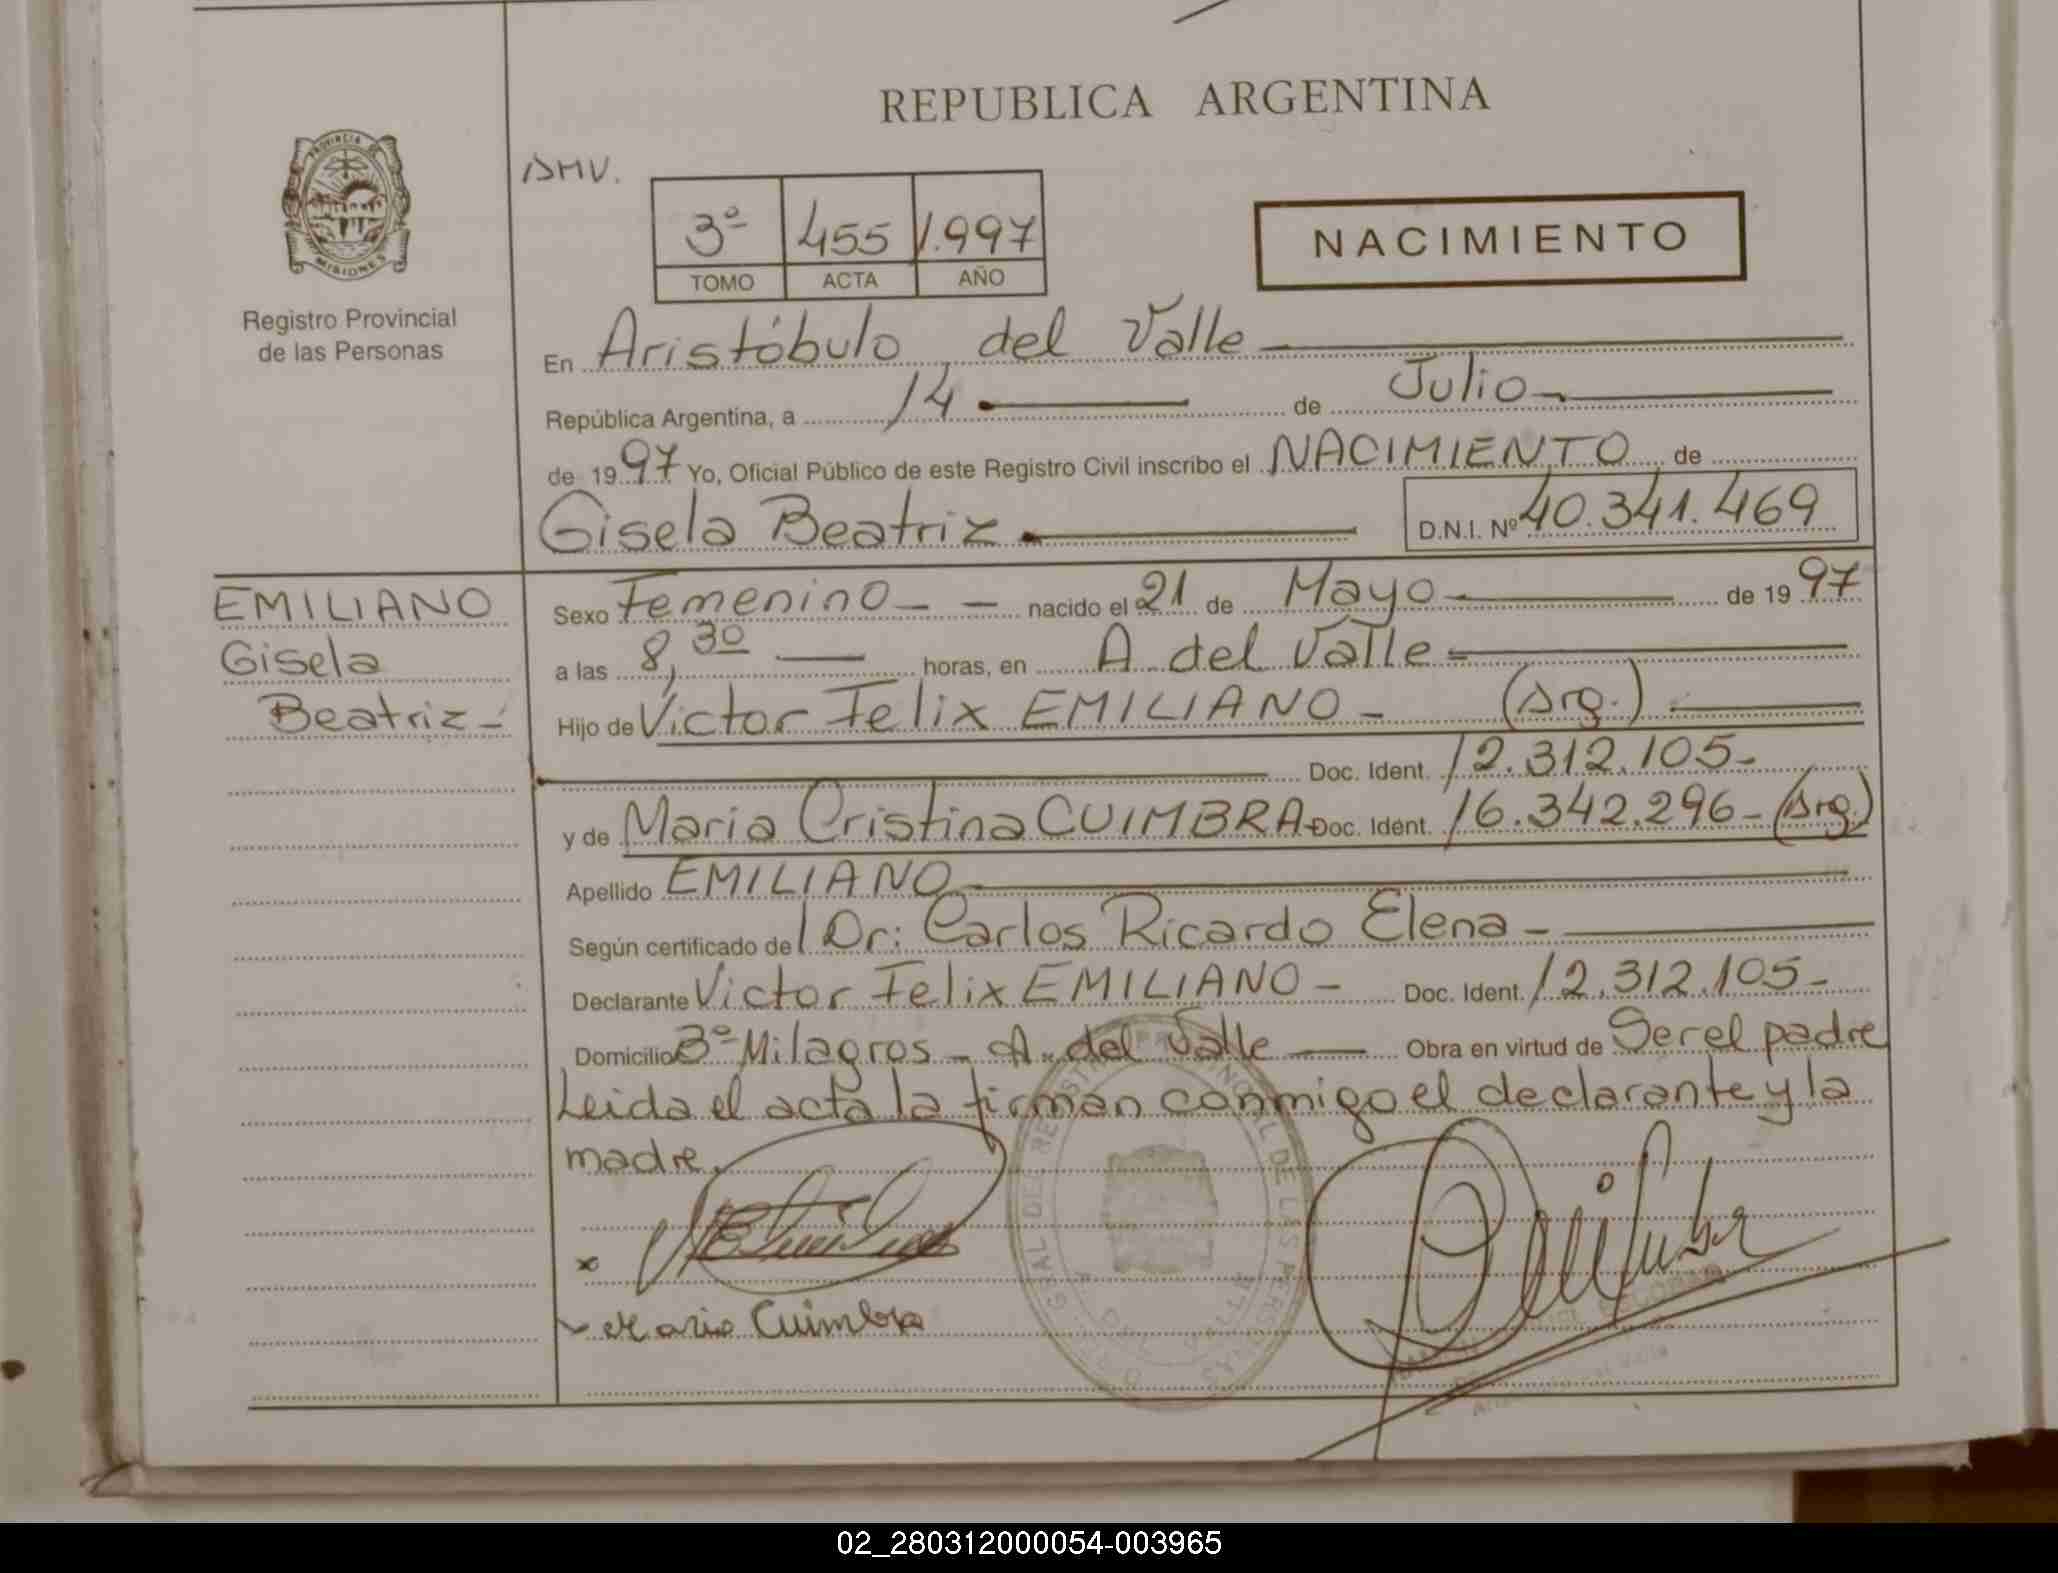 REPUBLICA ARGENTINA
PROVINCIA DE
MISIONES
Registro Provincial
de las Personas
3º 455 1.997
TOMO ACTA AÑO
NACIMIENTO
En Aristóbulo del Valle
República Argentina, a 14 de Julio
de 1997 Yo, Oficial Público de este Registro Civil inscribo el NACIMIENTO de
Gisela Beatriz D.N.I. Nº 40.341.469
EMILIANO
Gisela
Beatriz
Sexo Femenino nacido el 21 de Mayo de 1997
a las 8,30 horas, en A del Valle
Hijo de Victor Felix EMILIANO (Arg.)
Doc. Ident. 12.312.105
y de Maria Cristina CUIMBRA Doc. Ident. 16.342.296 (Arg.)
Apellido EMILIANO
Según certificado del Dr: Carlos Ricardo Elena
Declarante Victor Felix EMILIANO Doc. Ident. 12.312.105
Domicilio Bº Milagros - A. del Valle Obra en virtud de Ser el padre
Leida el acta la firman conmigo el declarante y la
madre.
Maria Cuimbra
02_280312000054-003965